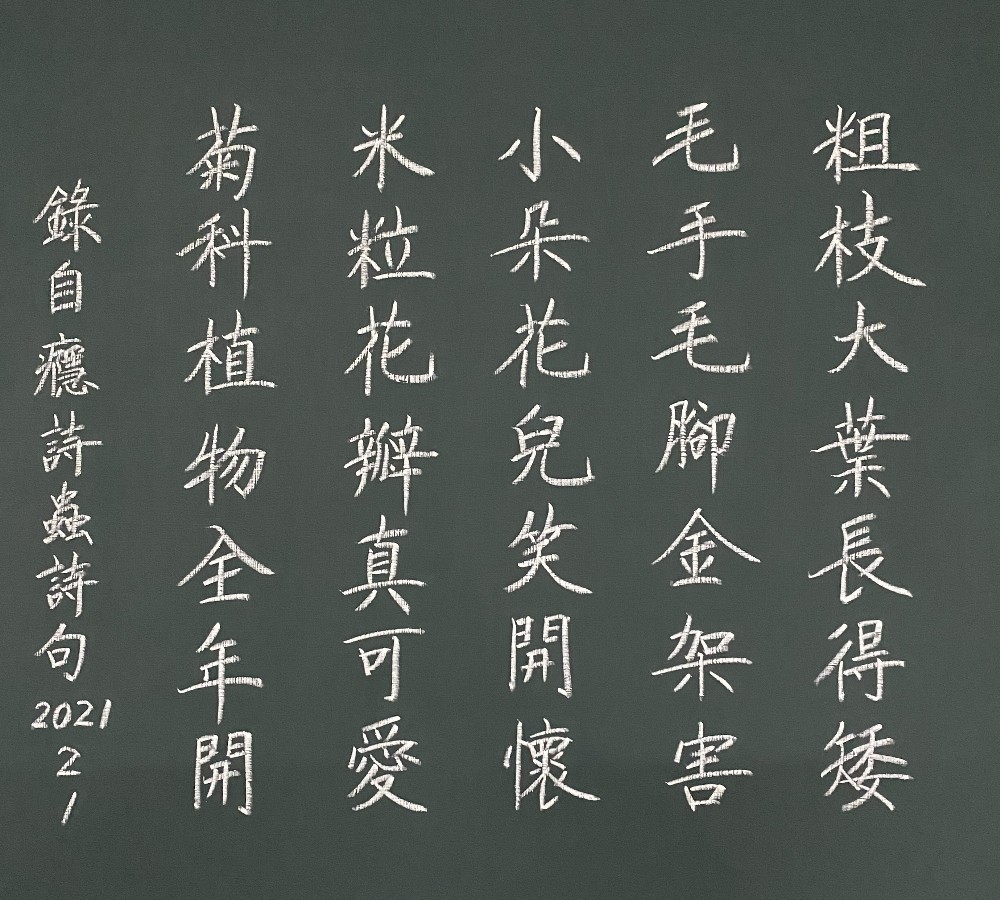 粗枝大葉長得矮
毛手毛腳金架害
小朵花兒笑開懷
米粒花瓣真可愛
菊科植物全年開
錄自癮詩蟲詩句
2021
2
1